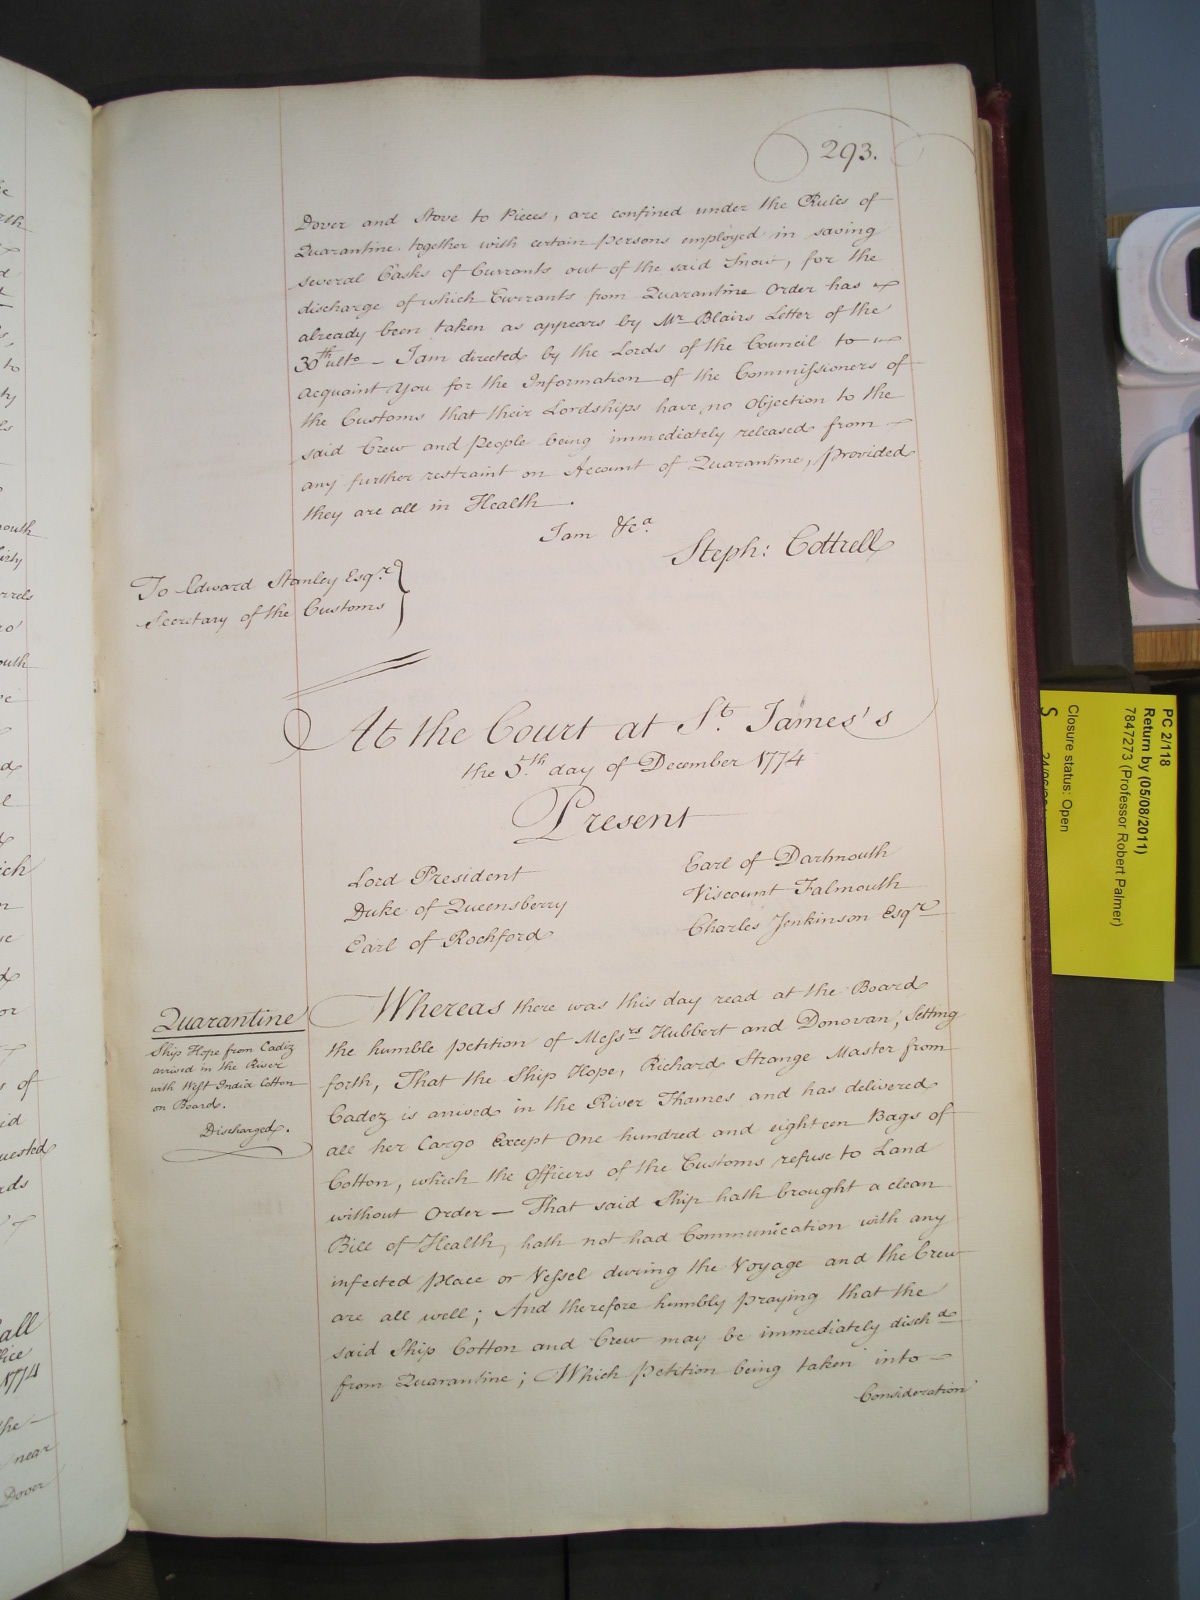 293.
Dover and Stove to Pieces, are confined under the Rules of
Quarantine together with certain Persons employed in saving
several Casks of Currants out of the said Snow, for the
discharge of which Currants from Quarantine Order has
already been taken as appears by Mr Blairs Letter of the
30th ulto — I am directed by the Lords of the Council to
acquaint You for the Information of the Commissioners of
the Customs that their Lordships have no Objection to the
said Crew and People being immediately released from
any further restraint on Account of Quarantine, provided
they are all in Health.
I am &ca
Steph: Cottrell
To Edward Stanley Esqr.
Secretary of the Customs
At the Court at St. James's
the 5th. day of December 1774
Present
Lord President
Duke of Queensberry
Earl of Rochford
Earl of Dartmouth
Viscount Falmouth
Charles Jenkinson Esqr
Quarantine
Ship Hope from Cadiz
arrived in the River
with West India Cotton
on Board.
Discharged.
Whereas there was this day read at the Board
the humble petition of Messrs Hubbert and Donovan, Setting
forth, That the Ship Hope, Richard Strange Master from
Cadez is arrived in the River Thames and has delivered
all her Cargo Except One hundred and eighteen Bags of
Cotton, which the Officers of the Customs refuse to Land
without Order — That said Ship hath brought a clean
Bill of Health, hath not had Communication with any
infected place or Vessel during the Voyage and the Crew
are all well; And therefore humbly praying that the
said Ship Cotton and Crew may be immediately dischd
from Quarantine; Which petition being taken into
Consideration
PC 2/118
Return by (05/08/2011)
7847273 (Professor Robert Palmer)
Closure status: Open
S